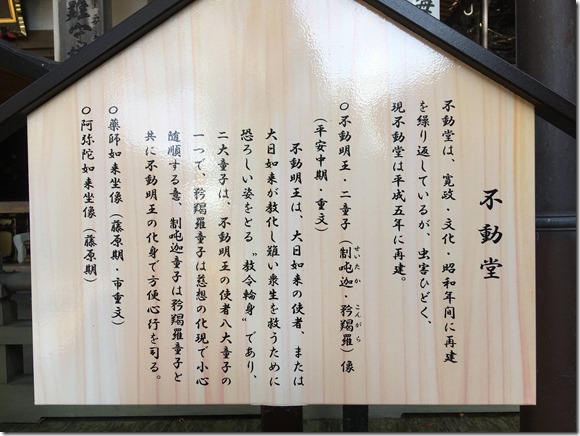 不動堂
不動堂は、寛政・文化・昭和年間に再建
を繰り返しているが、虫害ひどく、
現不動堂は平成五年に再建。
○不動明王・二童子(制吒迦・矜羯羅)像
せいたか こんがら
(平安中期・重文)
不動明王は、大日如来の使者、または
大日如来が教化し難い衆生を救うために
恐ろしい姿をとる〝教令輪身〟であり、
二大童子は、不動明王の使者八大童子の
一つで、矜羯羅童子は慈想の化現で小心
随順する意、制吒迦童子は矜羯羅童子と
共に不動明王の化身で方便心行を司る。
○薬師如来坐像(藤原期・市重文)
○阿弥陀如来坐像(藤原期)